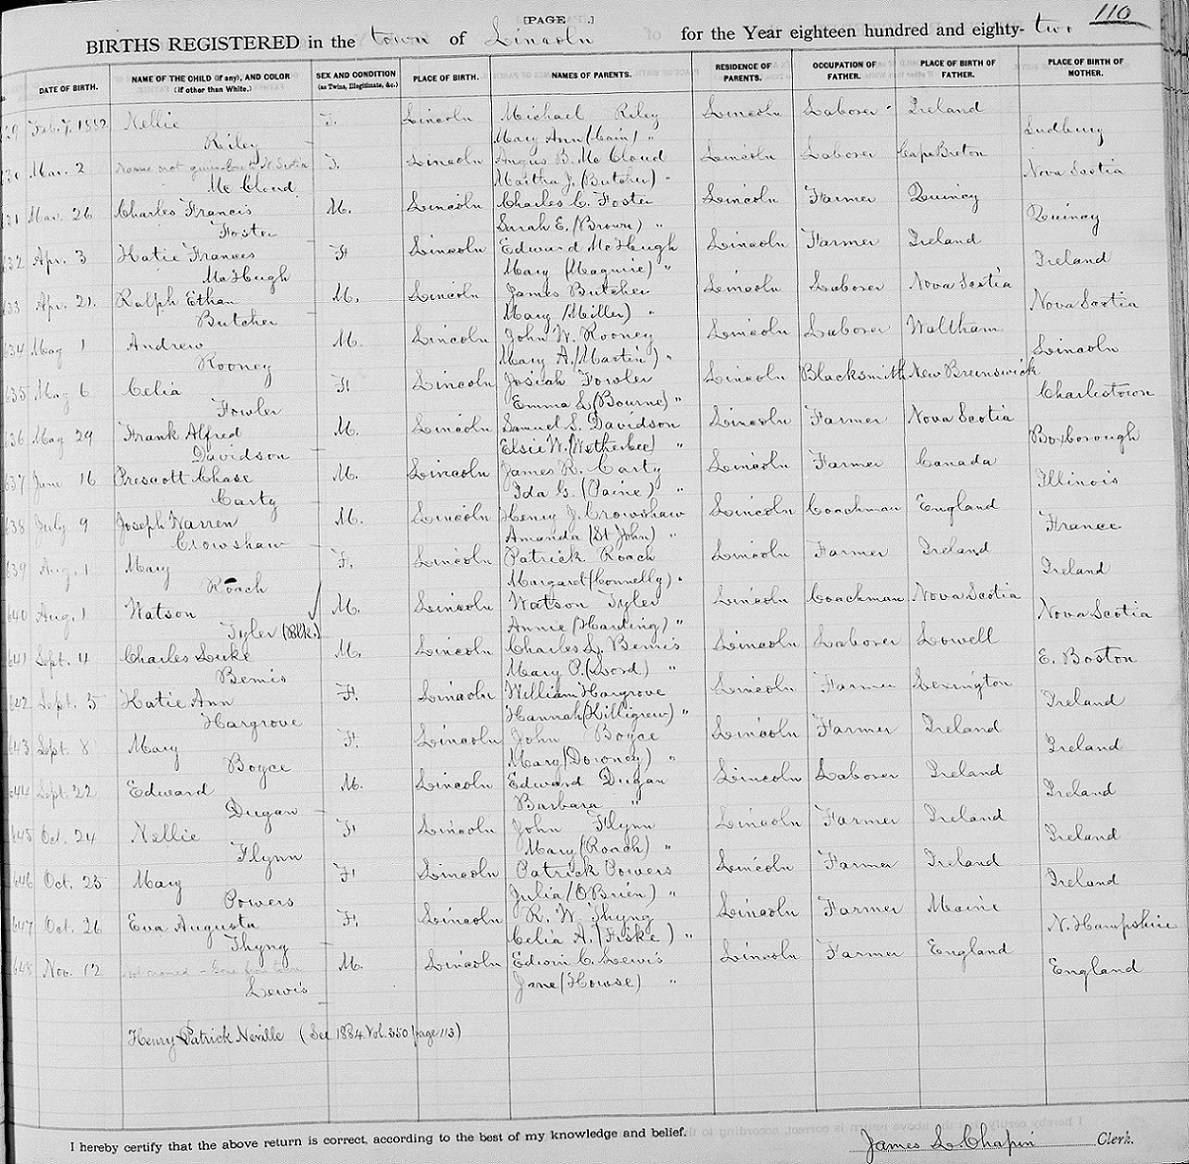 [PAGE .] 110
BIRTHS REGISTERED in the town of Lincoln for the Year eighteen hundred and eighty-two
DATE OF BIRTH. NAME OF THE CHILD (if any), AND COLOR (if other than White.) SEX AND CONDITION (as Twins, Illegitimate, &c.) PLACE OF BIRTH. NAMES OF PARENTS. RESIDENCE OF PARENTS. OCCUPATION OF FATHER. PLACE OF BIRTH OF FATHER. PLACE OF BIRTH OF MOTHER.
29 Feb. 7, 1882 Nellie F. Lincoln Michael Riley Lincoln Laborer Ireland
Riley Mary Ann (Cain) " Sudbury
Mar. 2 Name not given F. Lincoln Angus B. McCloud Lincoln Laborer Cape Breton
McCloud Martha J. (Butcher) " Nova Scotia
31 Mar. 26 Charles Francis M. Lincoln Charles C. Foster Lincoln Farmer Quincy
Foster Sarah E. (Brown) " Quincy
632 Apr. 3 Katie Frances F. Lincoln Edward McHugh Lincoln Farmer Ireland
McHugh Mary (Maguire) " Ireland
633 Apr. 21. Ralph Ethan M. Lincoln James Butcher Lincoln Laborer Nova Scotia
Butcher Mary (Miller) " Nova Scotia
634 May 1 Andrew M. Lincoln John W. Rooney Lincoln Laborer Waltham
Rooney Mary A. (Martin) " Lincoln
635 May 6 Celia F. Lincoln Josiah Fowler Lincoln Blacksmith New Brunswick
Fowler Emma L. (Bourne) " Charlestown
636 May 29 Frank Alfred M. Lincoln Samuel S. Davidson Lincoln Farmer Nova Scotia
Davidson Elsie W. (Wetherbee) " Boxborough
637 June 16 Prescott Chase M. Lincoln James R. Carty Lincoln Farmer Canada
Carty Ida G. (Paine) " Illinois
638 July 9 Joseph Warren M. Lincoln Henry J. Crowshaw Lincoln Coachman England
Crowshaw Amanda (St John) " France
639 Aug. 1 Mary F. Lincoln Patrick Roach Lincoln Farmer Ireland
Roach Margaret (Connelly) " Ireland
640 Aug. 1 Watson M. Lincoln Watson Tyler Lincoln Coachman Nova Scotia
Tyler (Blk.) Annie (Harding) " Nova Scotia
641 Sept. 4 Charles Luke M. Lincoln Charles L. Bemis Lincoln Laborer Lowell
Bemis Mary P. (Lord) " E. Boston
642 Sept. 5 Katie Ann F. Lincoln William Hargrove Lincoln Farmer Lexington
Hargrove Hannah (Killigrew) " Ireland
643 Sept. 8 Mary F. Lincoln John Boyce Lincoln Farmer Ireland
Boyce Mary (Downey) " Ireland
644 Sept. 22 Edward M. Lincoln Edward Dugan Lincoln Laborer Ireland
Dugan Barbara " Ireland
645 Oct. 24 Nellie F. Lincoln John Flynn Lincoln Farmer Ireland
Flynn Mary (Roach) " Ireland
646 Oct. 25 Mary F. Lincoln Patrick Powers Lincoln Farmer Ireland
Powers Julia (O'Brien) " Ireland
647 Oct. 26 Eva Augusta F. Lincoln R. W. Thyng Lincoln Farmer Maine
Thyng Celia A. (Fiske) " N. Hampshire
648 Nov. 12 Not named - Gone from town M. Lincoln Edwin C. Lewis Lincoln Farmer England
Lewis Jane (Howse) " England
Henry Patrick Neville (See 1884. Vol. 350 page 113)
I hereby certify that the above return is correct, according to the best of my knowledge and belief.
James L. Chapin Clerk.